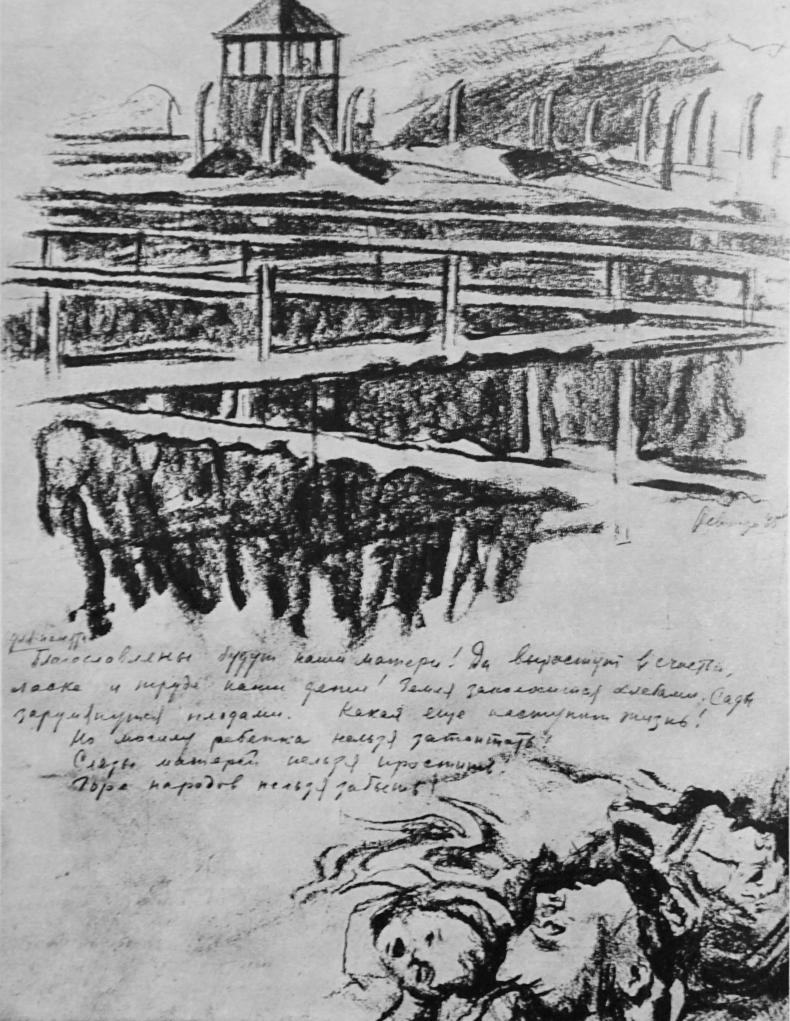 Благословлены будут наши матери! Да вырастут в счастьи,
ласке и труде наши дети! Земля заколосится хлебами, Сады
зарумянутся плодами. Какая еще наступит жизнь!
Но могилу ребенка нельзя затоптать!
Слезы матерей нельзя простить!
Горе народов нельзя забыть!